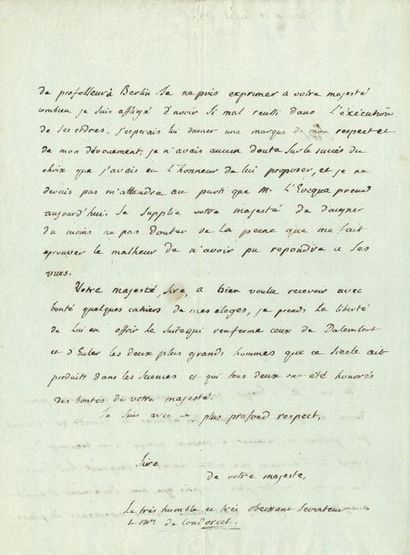 de professeur à Berlin je ne puis exprimer a votre majesté
combien je suis affligé d'avoir si mal reussi dans l'éxécution
de ses ordres. j'esperais lui donner une marque de mon respect et
de mon dévouement, je n'avais aucun doute sur le succès du
choix que j'avais eu l'honneur de lui proposer, et je ne
devais pas m'attendre au parti que Mr. l'Evequa prend
aujourd'hui. Je supplie votre majesté de daigner
du moins ne pas douter de la peine que me fait
eprouver le malheur de n'avoir pu repondre a ses
vues.
Votre majesté, sire, a bien voulu recevoir avec
bonté quelques cahiers de mes eloges, je prends la liberté
de lui en offrir la suite qui renferme ceux de Dalembert
et d'Euler les deux plus grands hommes que ce siecle ait
produits dans les sciences et qui tous deux ont été honorés
des bontés de votre majesté.
Je suis avec le plus profond respect,
Sire
de votre majesté,
Le très humble et très obeissant serviteur
Le Mis. de Condorcet.